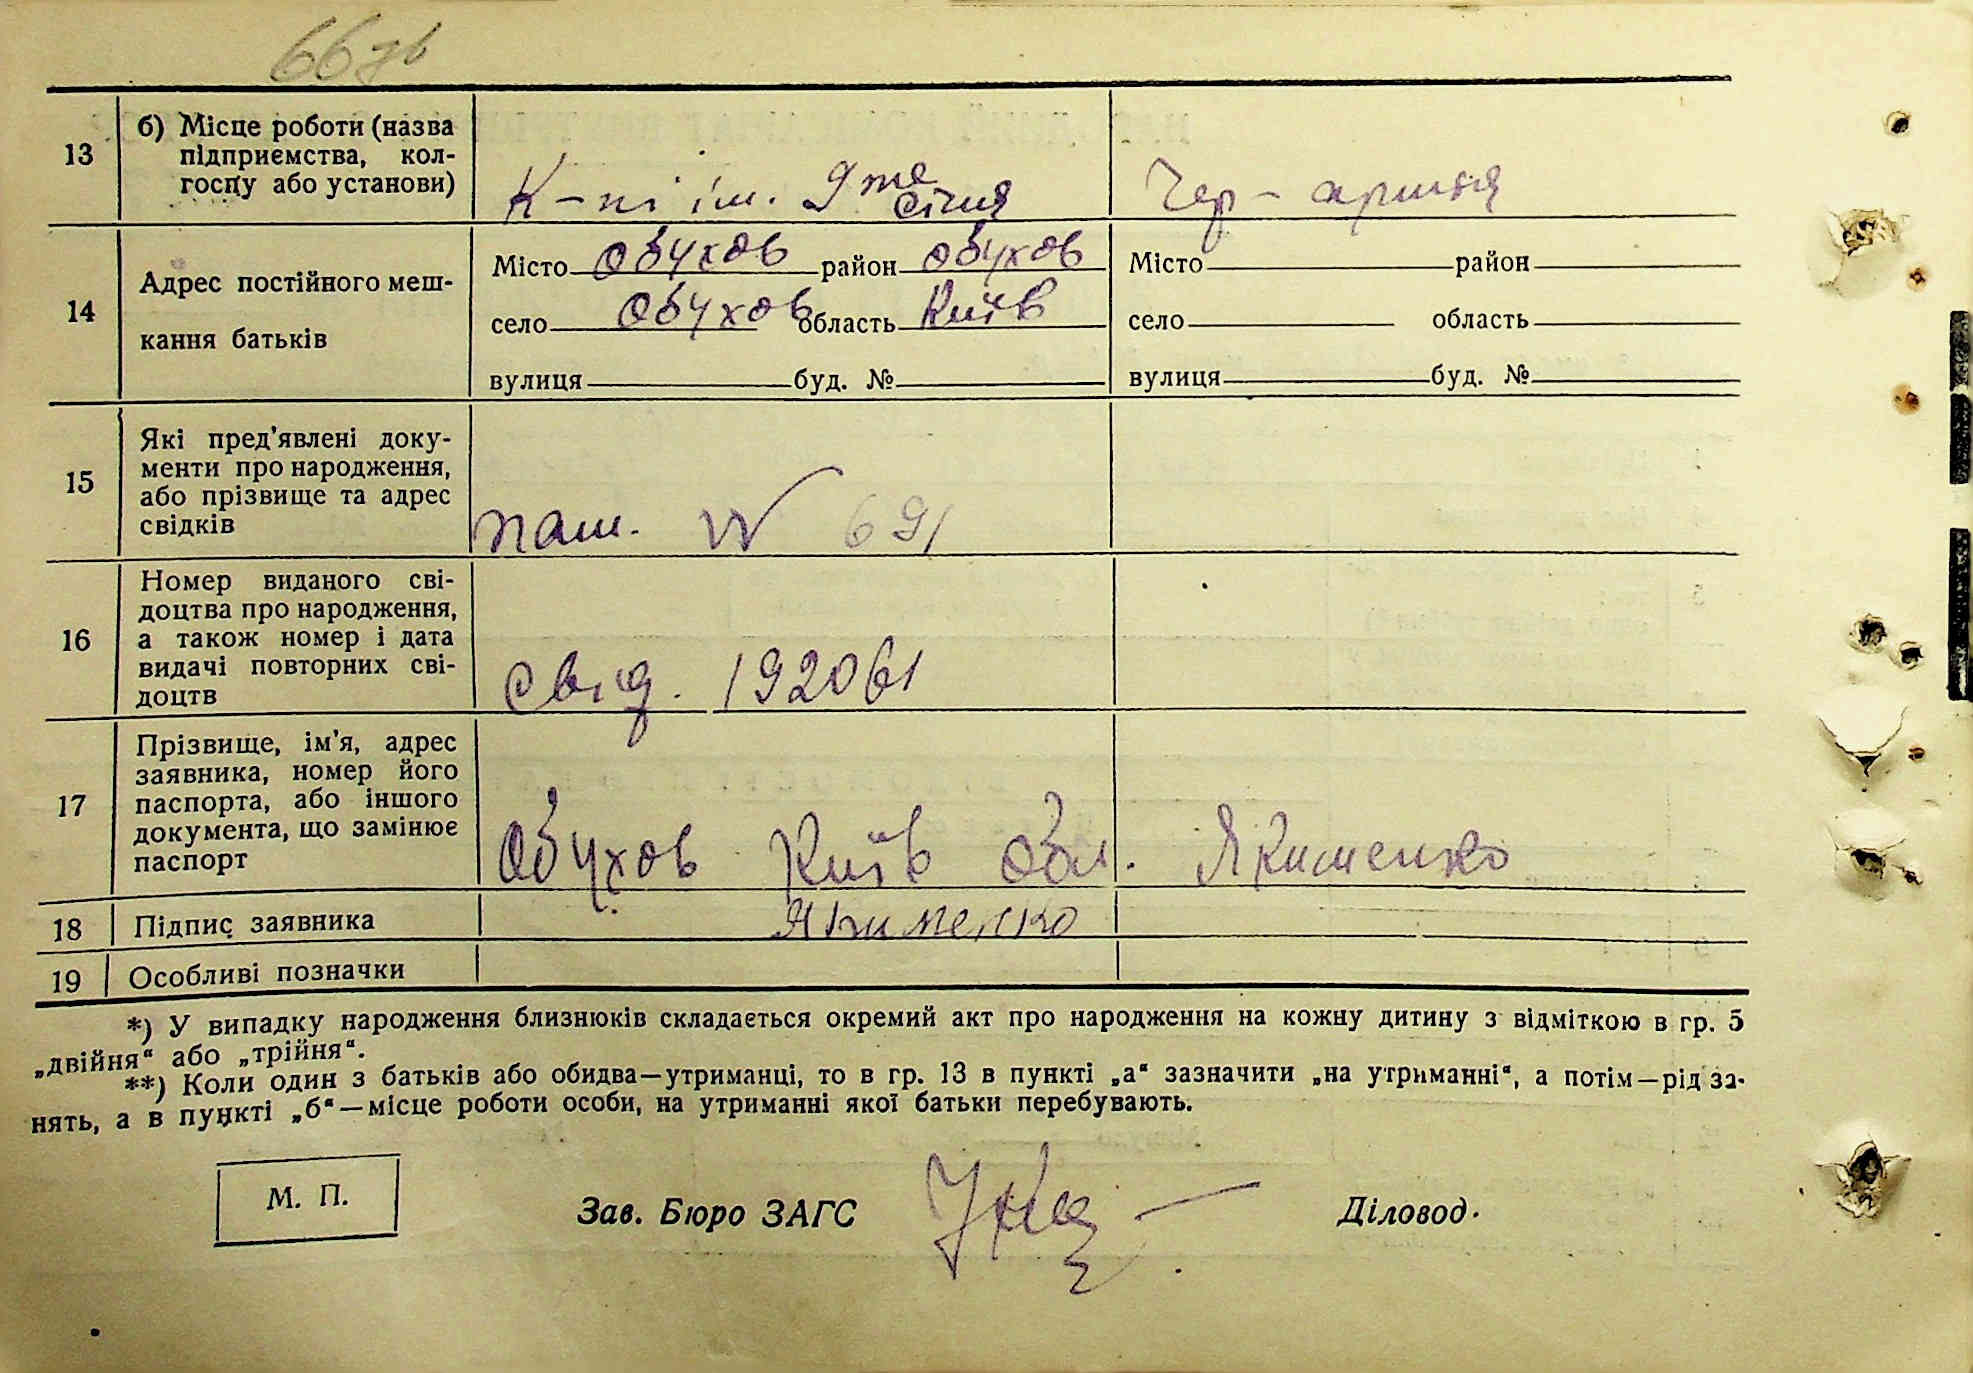 66зв
13
б) Місце роботи (назва
підприємства, кол-
госпу або установи)
К-п ім. 9те січня
Чер- армія
14
Адрес постійного меш-
кання батьків
Місто Обухов район Обухов
село Обухов область Київ
вулиця буд. №
Місто район
село область
вулиця буд. №
15
Які пред'явлені доку-
менти про народження,
або прізвище та адрес
свідків
паш. № 691
16
Номер виданого сві-
доцтва про народження,
а також номер і дата
видачі повторних сві-
доцтв
свід. 192061
17
Прізвище, ім'я, адрес
заявника, номер його
паспорта, або іншого
документа, що замінює
паспорт
Обухов Київ обл. Якименко
18 Підпис заявника
Якименко
19 Особливі позначки
*) У випадку народження близнюків складається окремий акт про народження на кожну дитину з відміткою в гр. 5
„двійня“ або „трійня“.
**) Коли один з батьків або обидва—утриманці, то в гр. 13 в пункті „а“ зазначити „на утриманні“, а потім—рід за-
нять, а в пункті „б“—місце роботи особи, на утриманні якої батьки перебувають.
М. П.
Зав. Бюро ЗАГС
Діловод.